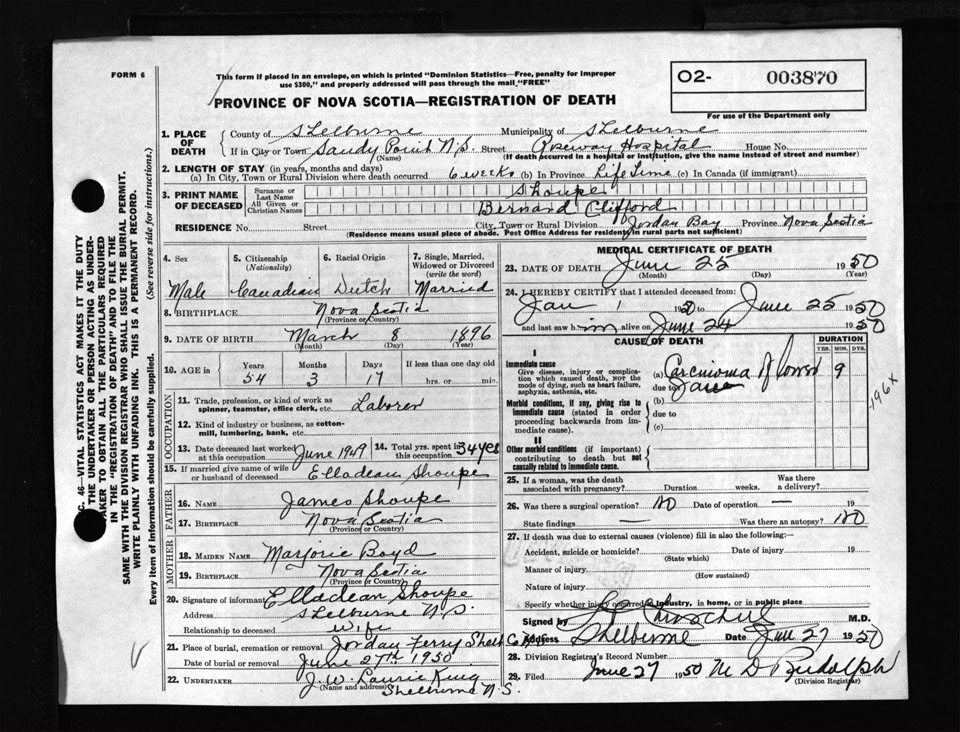 FORM 6
This form if placed in an envelope, on which is printed "Dominion Statistics—Free, penalty for improper
use $300," and properly addressed will pass through the mail "FREE"
O2- 003870
For use of the Department only
PROVINCE OF NOVA SCOTIA—REGISTRATION OF DEATH
C. 46—VITAL STATISTICS ACT MAKES IT THE DUTY
THE UNDERTAKER OR PERSON ACTING AS UNDER-
TAKER TO OBTAIN ALL THE PARTICULARS REQUIRED
IN THE "REGISTRATION OF DEATH" AND TO FILE THE
SAME WITH THE DIVISION REGISTRAR WHO SHALL ISSUE THE BURIAL PERMIT.
WRITE PLAINLY WITH UNFADING INK. THIS IS A PERMANENT RECORD.
Every item of information should be carefully supplied. (See reverse side for instructions.)
1. PLACE OF DEATH County of Shelburne Municipality of Shelburne
If in City or Town Sandy Point N.S. Street Roseway Hospital House No.
(Name) (If death occurred in a hospital or institution, give the name instead of street and number)
2. LENGTH OF STAY (in years, months and days)
(a) In City, Town or Rural Division where death occurred 6 weeks (b) In Province Life Time (c) In Canada (if immigrant)
3. PRINT NAME OF DECEASED Surname or Last Name Shoupe
All Given or Christian Names Bernard Clifford
RESIDENCE No. Street City, Town or Rural Division Jordan Bay Province Nova Scotia
(Residence means usual place of abode. Post Office Address for residents in rural parts not sufficient)
4. Sex Male
5. Citizenship (Nationality) Canadian
6. Racial Origin Dutch
7. Single, Married, Widowed or Divorced (write the word) Married
8. BIRTHPLACE Nova Scotia
(Province or Country)
9. DATE OF BIRTH March 8 1896
(Month) (Day) (Year)
10. AGE in Years Months Days If less than one day old
54 3 17 hrs. or min.
OCCUPATION
11. Trade, profession, or kind of work as spinner, teamster, office clerk, etc. Laborer
12. Kind of industry or business, as cotton-mill, lumbering, bank, etc.
13. Date deceased last worked at this occupation June 1949 14. Total yrs. spent in this occupation 34 yrs
15. If married give name of wife or husband of deceased Elladean Shoupe
FATHER
16. NAME James Shoupe
17. BIRTHPLACE Nova Scotia
(Province or Country)
MOTHER
18. MAIDEN NAME Marjorie Boyd
19. BIRTHPLACE Nova Scotia
(Province or Country)
20. Signature of informant Elladean Shoupe
Address Shelburne N.S.
Relationship to deceased Wife
21. Place of burial, cremation or removal Jordan Ferry Shelb
Date of burial or removal June 27th 1950
22. UNDERTAKER J. W. Laurie King
(Name and address) Shelburne N.S.
MEDICAL CERTIFICATE OF DEATH
23. DATE OF DEATH June 25 1950
(Month) (Day) (Year)
24. I HEREBY CERTIFY that I attended deceased from:
Jan 1 1950 to June 25 1950
and last saw him alive on June 24 1950
CAUSE OF DEATH DURATION
YRS. MOS. DYS.
I
Immediate cause
Give disease, injury or complication which caused death, NOT the mode of dying, such as heart failure, asphyxia, asthenia, etc.
(a) Carcinoma of lower 9
due to Jaw
196X
Morbid conditions, if any, giving rise to immediate cause (stated in order proceeding backwards from immediate cause).
(b)
due to
(c)
II
Other morbid conditions (if important) contributing to death but not causally related to immediate cause.
25. If a woman, was the death associated with pregnancy? Duration weeks. Was there a delivery?
26. Was there a surgical operation? No Date of operation — 19
State findings — Was there an autopsy? No
27. If death was due to external causes (violence) fill in also the following:—
Accident, suicide or homicide? Date of injury 19
(State which)
Manner of injury
(How sustained)
Nature of injury
Specify whether injury occurred in industry, in home, or in public place
Signed by M.D.
Shelburne Date June 27 1950
28. Division Registrar's Record Number
29. Filed June 27 1950 M D Rudolph
(Division Registrar)